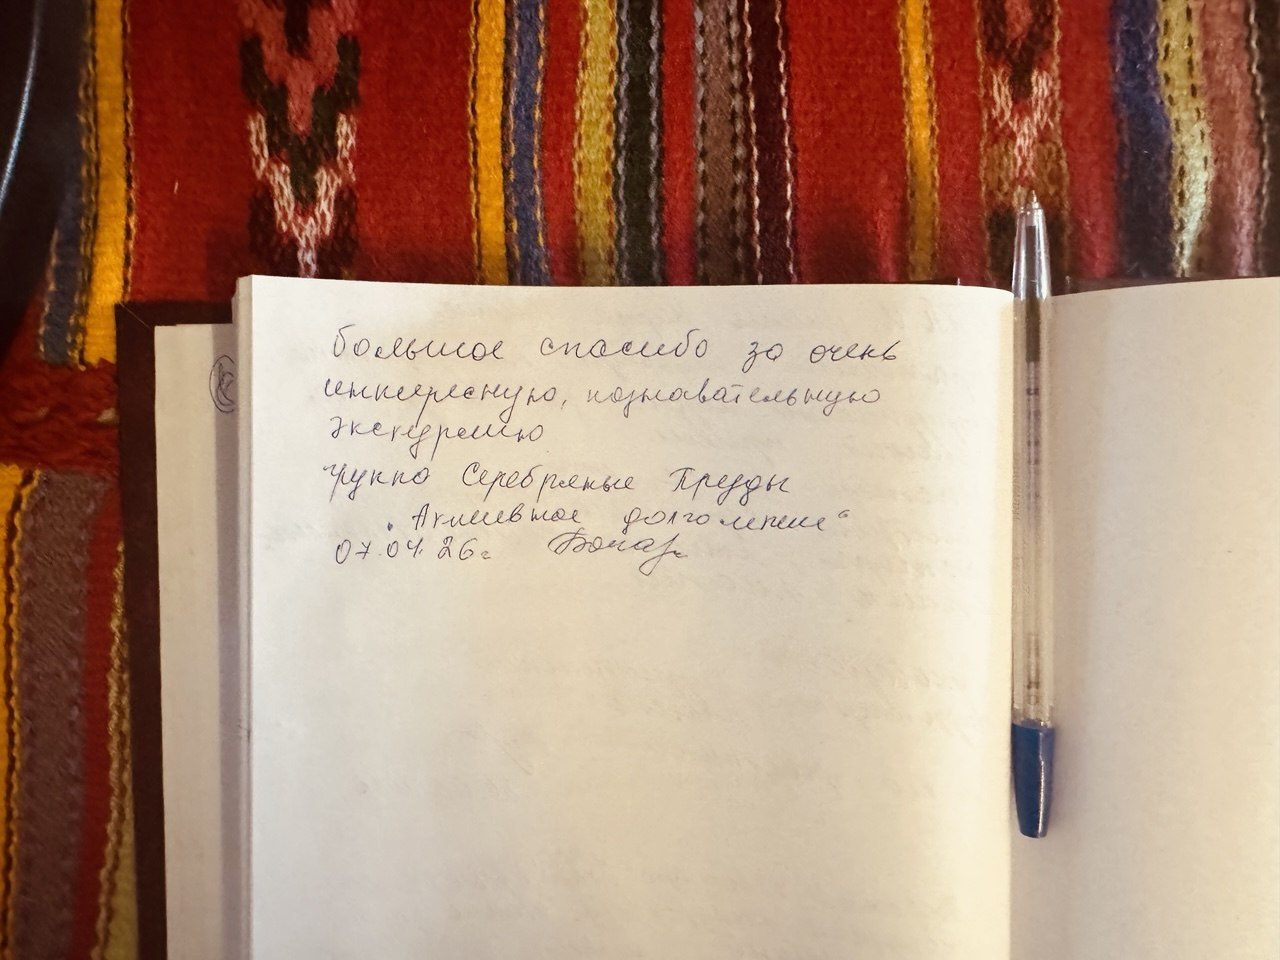 Большое спасибо за очень
интересную, познавательную
экскурсию
группа Серебряные Пруды
"Активное долголетие"
07.04.26г.